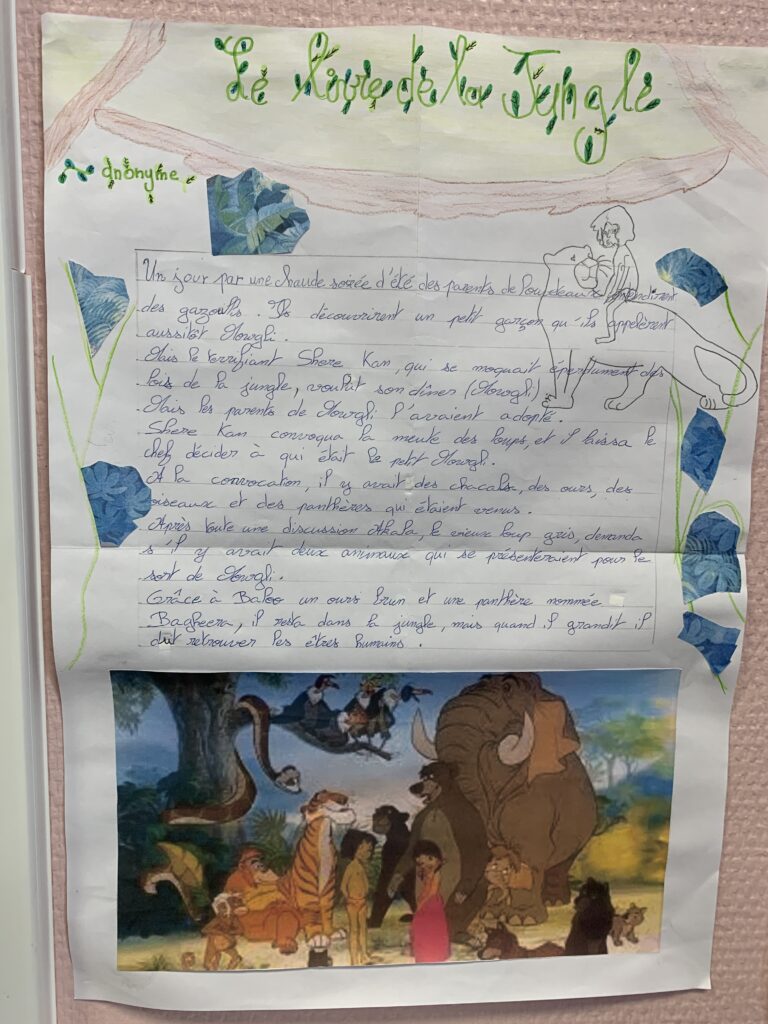 Le livre de la Jungle
Anonyme
Un jour par une chaude soirée d'été des parents de louveteaux entendirent
des gazoullis. Ils découvrirent un petit garçon qu'ils appelèrent
aussitôt Mowgli.
Mais le terrifiant Shere Kan, qui se moquait éperdument des
lois de la jungle, voulut son dîner (Mowgli).
Mais les parents de Mowgli l'avaient adopté.
Shere Kan convoqua la meute des loups, et il laissa le
chef décider à qui était le petit Mowgli.
A la convocation, il y avait des chacals, des ours, des
oiseaux et des panthères qui étaient venus.
Après toute une discussion Akala, le vieux loup gris, demanda
s'il y avait deux animaux qui se présenteraient pour le
sort de Mowgli.
Grâce à Baloo un ours brun et une panthère nommée
Bagheera, il resta dans la jungle, mais quand il grandit il
dut retrouver les êtres humains.